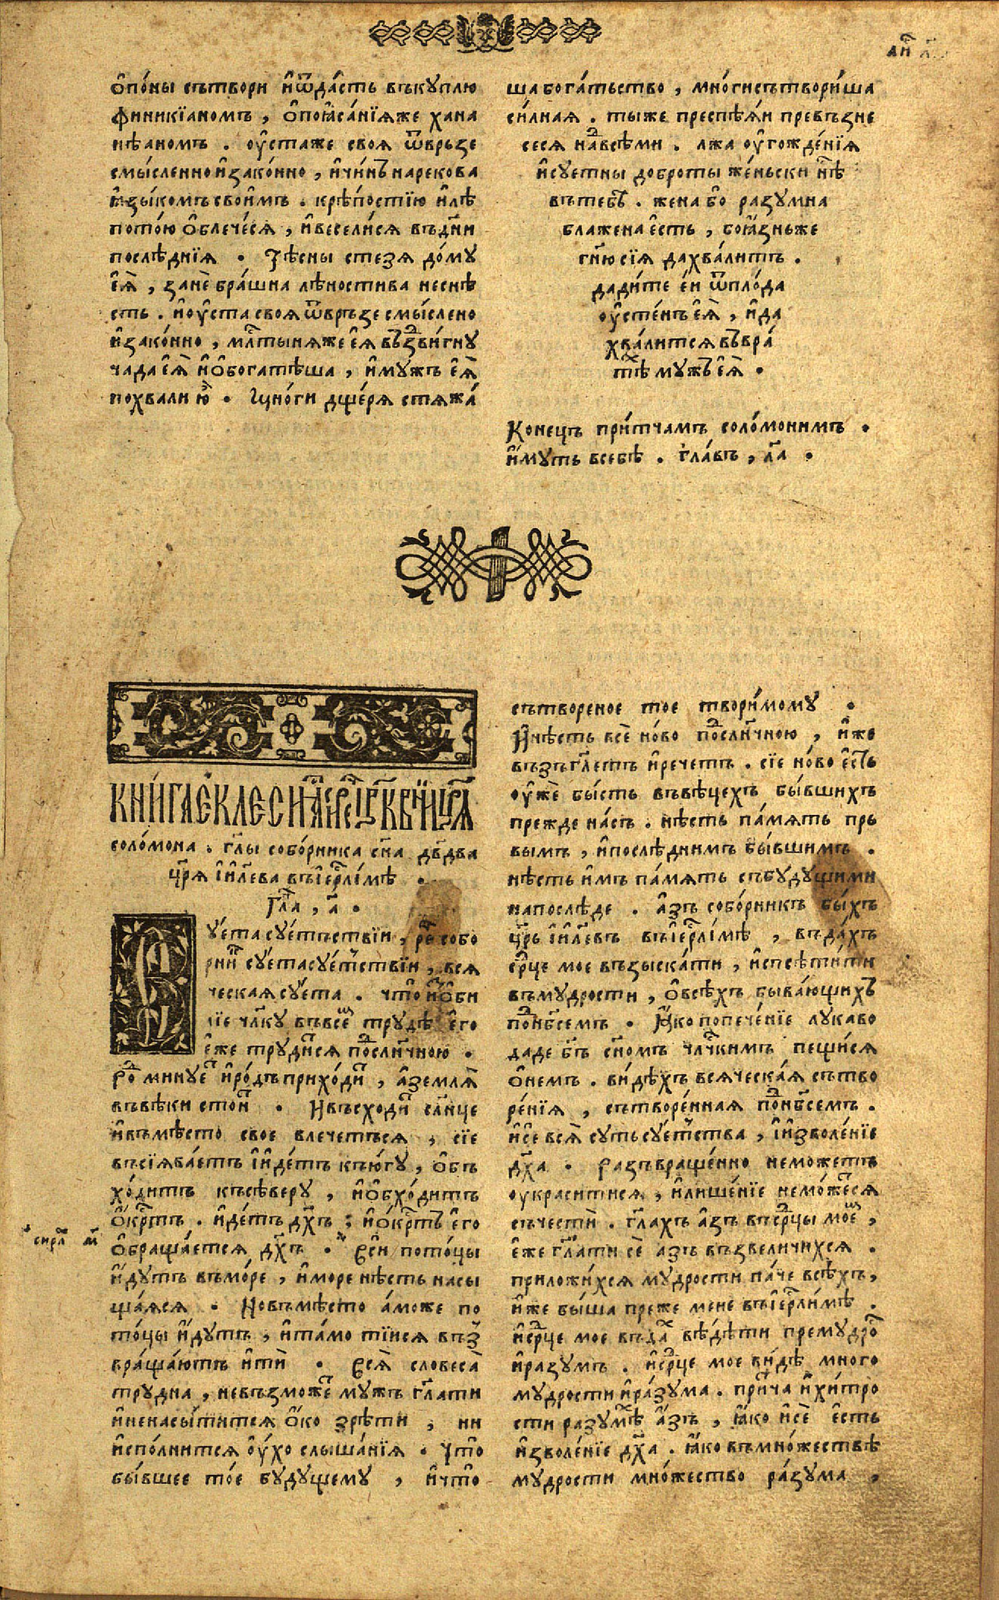 ѻ҆по́ны сътвори и҆ѿда́сть въкꙋплю
финикїаномъ , ѻ҆поꙗ҆са́нїꙗже хана
нѣаномъ . оу҆стаже своѧ ѿврьзе
смы́сленно и҆зако́нно , и҆чи́нъ нарекова
ꙗ҆зы́комъ свои́мъ . крѣ́постїю и҆лѣ
по́тою ѻ҆блече́сѧ , и҆весели́сѧ въдн҃и
послѣ́днїѧ . Тѣ́сны стезѧ до́мꙋ
е҆ѧ̀ , занѐ бра́шна лѣ́ностива неснѣ
сть . и҆оу҆ста своѧ ѿвръзе смы́слено
и҆зако́нно , мл҃тынѧже е҆ѧ̀ възъдви́гнꙋ
чада е҆ѧ̀ и҆ѡ҆богатѣ́ша , и҆мꙋжъ е҆ѧ̀
похвали ю҆̀ . Мно́ги дще́рѧ стѧжа́
ша бога́тьство , мно́ги сътвори́ша
си́лнаѧ . ты́же преспѣ́ѧи превъзне
сесѧ надъвсѣ́ми . лжа оу҆гожде́нїѧ
и҆сꙋетны доброты же́ньски нѣ́
въте́бѣ . жена бо разꙋмна
блажена е҆́сть , боѧ́зньже
гн҃ю сїѧ дахва́литъ .
дади́те е҆́и ѿпло́да
оу҆сте́нъ е҆ѧ̀ , и҆да
хва́литсѧ въвра
тѣ́хъ мꙋжъ е҆ѧ̀ .
Конецъ при́тчамъ соло́монимъ .
и҆́мꙋть всебѣ̀ . гла́въ , л҃а .
КНИ́ГА Е҆КЛЕСИА́СТЪ
соло́мона . гл҃ы собо́рника сн҃а дв҃два
цр҃ѧ і҆и҃лева віе҆рл҃и́мѣ .
Гла , а҃ .
Сꙋ́ета сꙋ́етъствїи , речѐ собо
рникъ сꙋ́ета сꙋ́етъствїи , всѧ
ческаѧ сꙋ́ета . что̀ и҆зѻби
лїе чл҃кꙋ въвсе́мъ трꙋдѣ̀ е҆го
е҆́же трꙋди́сѧ подъсл҃нчною .
ро́дъ минꙋетъ и҆ро́дъ прихо́дитъ , а҆землѧ̀
въвѣ́ки стои́тъ . И҆въсходи́тъ сл҃нце
и҆въмѣ́сто свое влечетъсѧ , сїе
въсїѧва́етъ і҆и҆де́тъ къю́гꙋ , ѻ҆бъ
хо́дитъ късѣ́верꙋ , и҆ѻ҆бхо́дитъ
ѻ҆́крстъ . и҆де́тъ дх҃ъ ; и҆ѻ҆крстъ е҆го
ѻ҆браща́етсѧ дх҃ъ . Вси́ пото́цы
и҆́дꙋтъ въмо́ре , и҆море нѣсть насы
ща́ѧсѧ . Новъмѣ́сто а҆́може по
то́цы и҆́дꙋтъ , и҆та́мо тїисѧ въз
враща́ютъ и҆тѝ . Всѧ̀ словеса̀
трꙋдна , невъзмо́жетъ мꙋжъ гл҃ати
и҆ненасы́титсѧ ѻ҆́ко зрѣ́ти , ни
и҆спо́лнитсѧ оу҆́хо слыша́нїѧ . Что̀
бы́вшее то́е бꙋдꙋщемꙋ , и҆что̀
сътвореное тое твори́момꙋ .
И҆нѣ́сть всѐ но́во подъсл҃нчною , и҆́же
възъгл҃етъ и҆речетъ . сїе но́во е҆́сть
оу҆жѐ бы́сть въвѣ́цехъ бы́вшихъ
прежде на́съ . нѣсть па́мѧть прь
вымъ , и҆послѣ́днимъ бы́вшимъ .
нѣсть и҆́мъ па́мѧть събꙋдꙋщими
напослѣ́де . а҆́зъ собо́рникъ бы́хъ
цр҃ь і҆и҃левъ віе҆рл҃и́мѣ , въда́хъ
ср҃це мое възыска́ти , и҆спѣ́тити
въмꙋдрости , ѻ҆всѣ́хъ быва́ющихъ
поднбсемъ . Ꙗ҆́ко попече́нїе лꙋкаво
даде бг҃ъ сн҃омъ чл҃чкимъ пещи́сѧ
ѻ҆не́мъ . ви́дѣхъ всѧческаѧ сътво
ре́нїѧ , сътворе́ннаѧ поднбсемъ .
и҆сѐ всѧ̀ сꙋть сꙋетства , і҆и҆зволе́нїе
дх҃а . Разъвраще́нно неможетъ
оу҆красити́сѧ , и҆лише́нїе немо́жетсѧ
съче́сти . гл҃ахъ а҆́зъ въср҃цы мое́мъ ,
е҆́же гл҃ати сѐ а҆зъ възвеличихсѧ .
приложи́хсѧ мꙋдрости па́че всѣ́хъ ,
и҆́же бы́ша преже мене віе҆рл҃и́мѣ .
и҆ср҃це мое въда́хъ вѣ́дѣти премꙋдро
и҆разꙋмъ . и҆ср҃це мое ви́дѣ много
мꙋдрости и҆ра́зꙋма . при́тча и҆хи́тро
сти разꙋмѣ́хъ а҆́зъ , ꙗ҆́ко и҆сѐ е҆́сть
и҆зволе́нїе дх҃а . ꙗ҆́ко въмно́жествѣ
мꙋдрости мно́жество ра́зꙋма ,